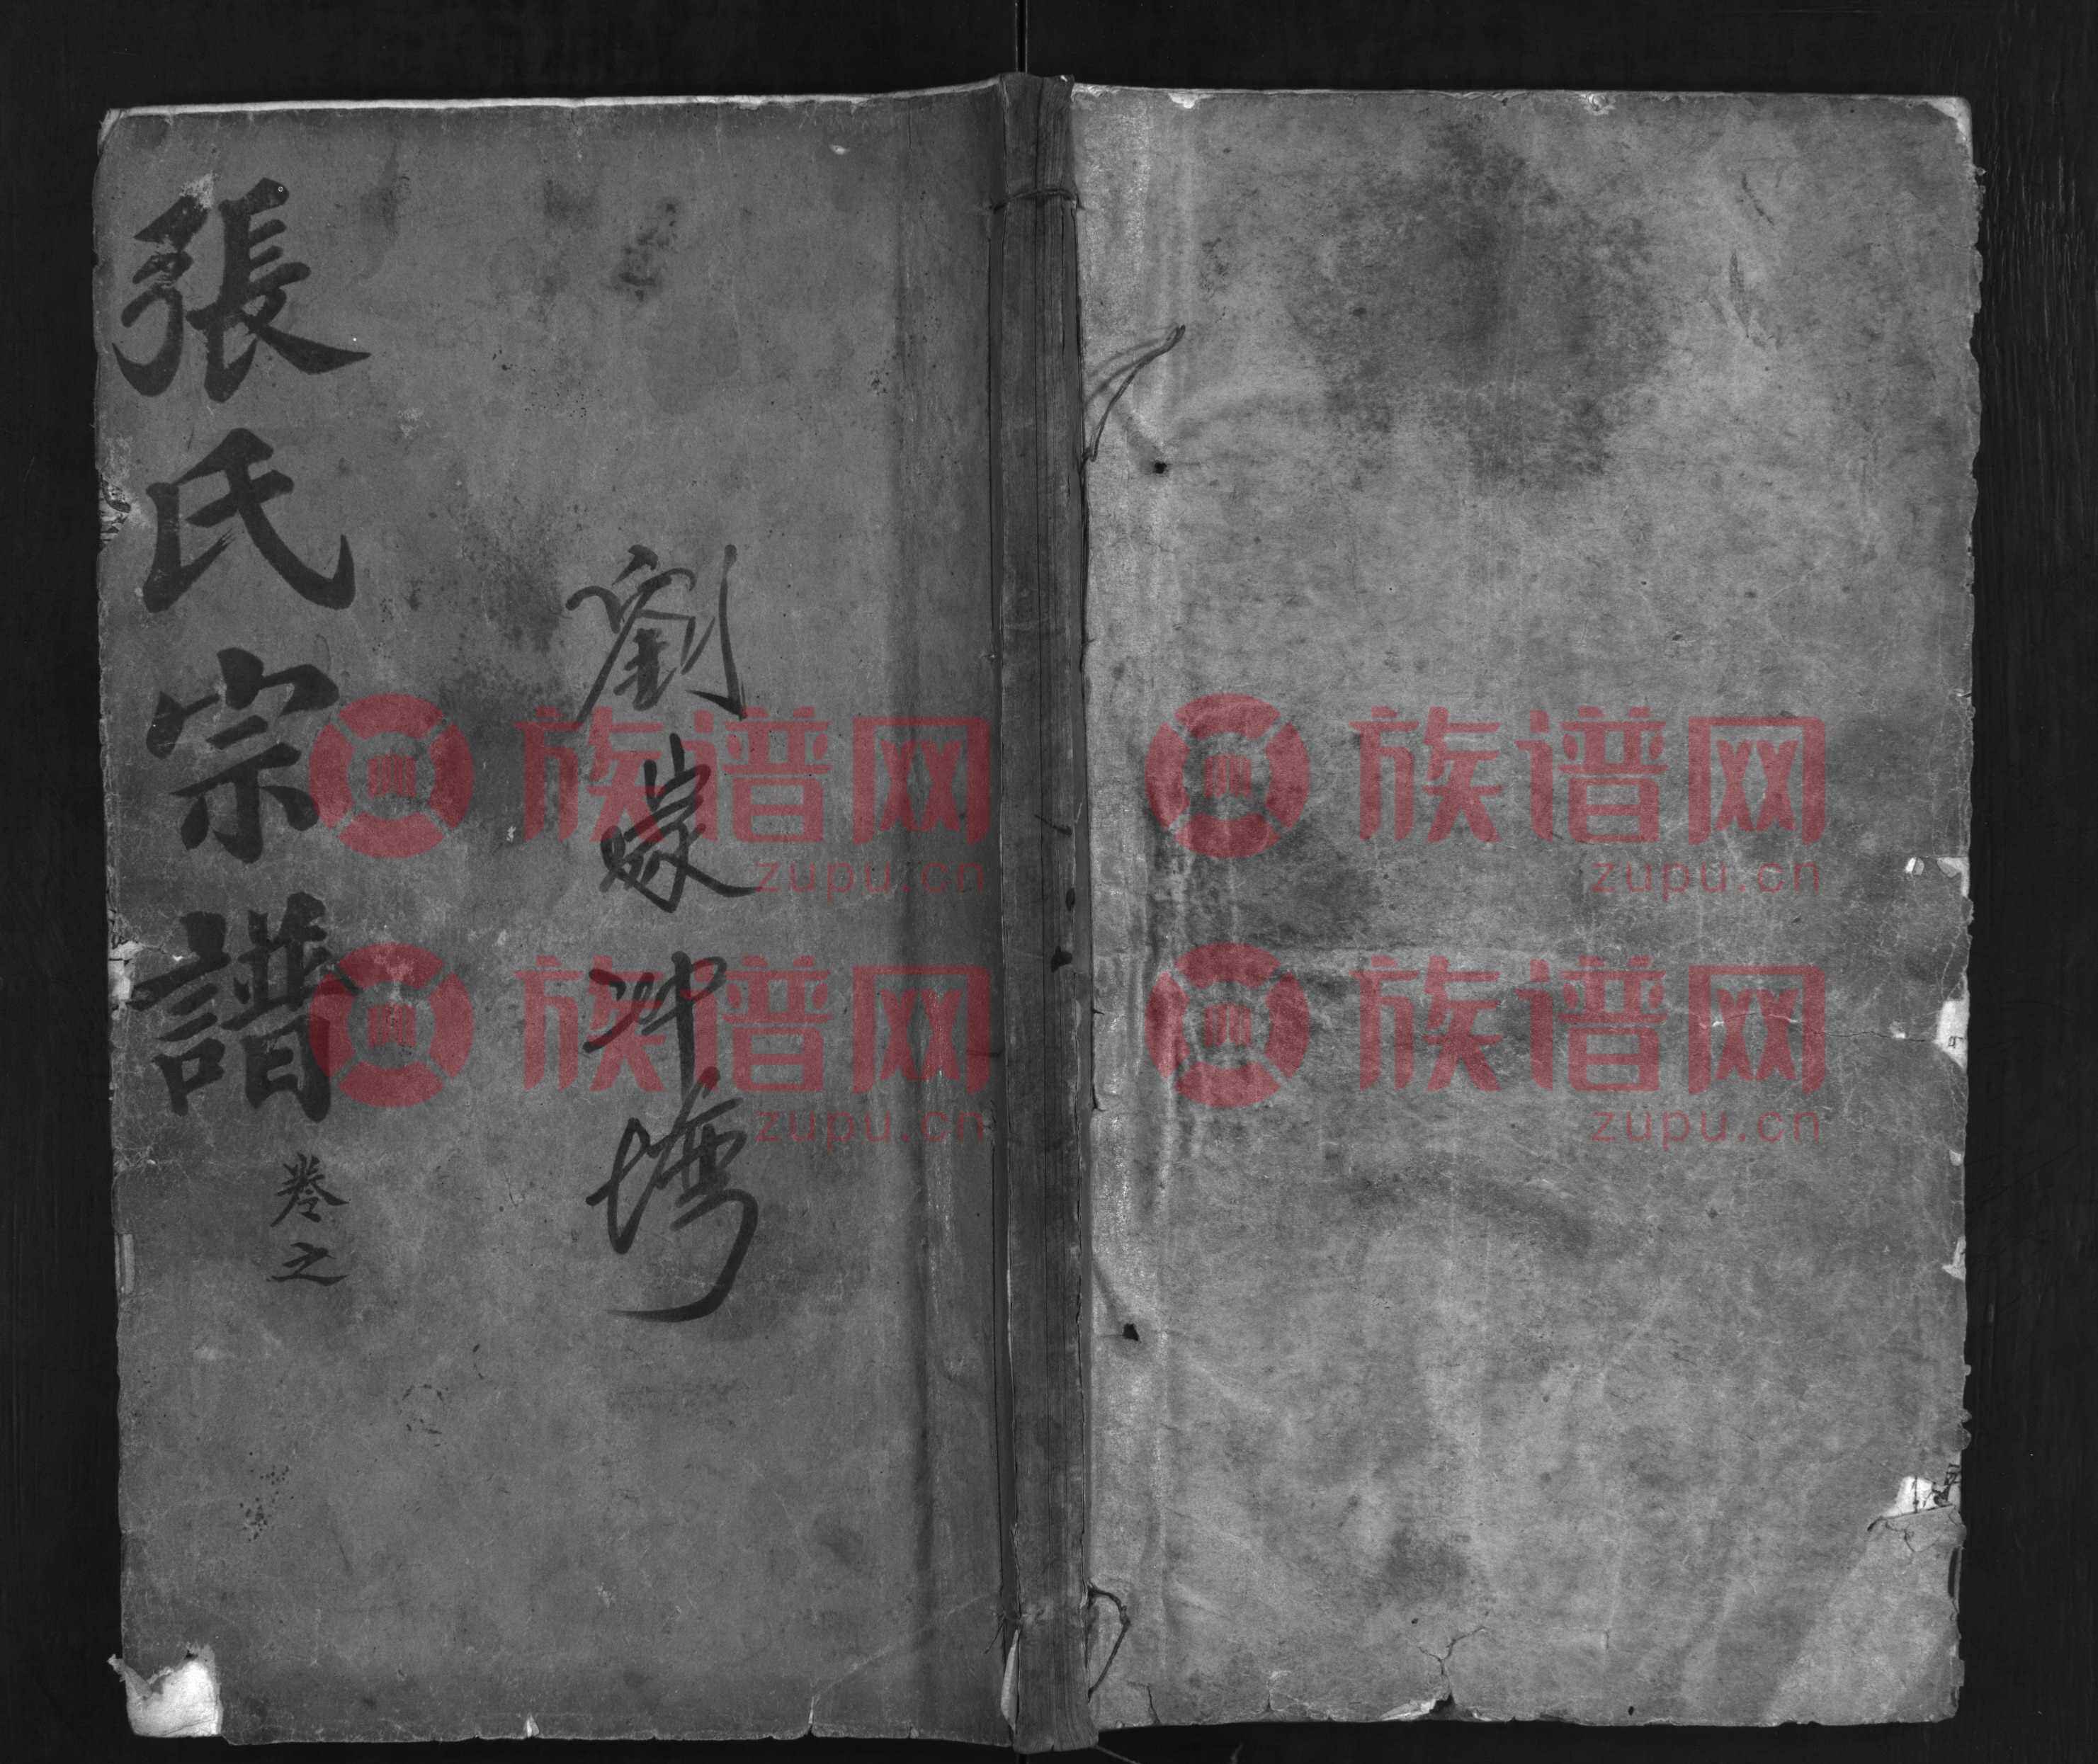 劉家冲塆
張氏宗譜
卷之
族谱网 族谱网
zupu.cn zupu.cn
族谱网 族谱网
zupu.cn zupu.cn